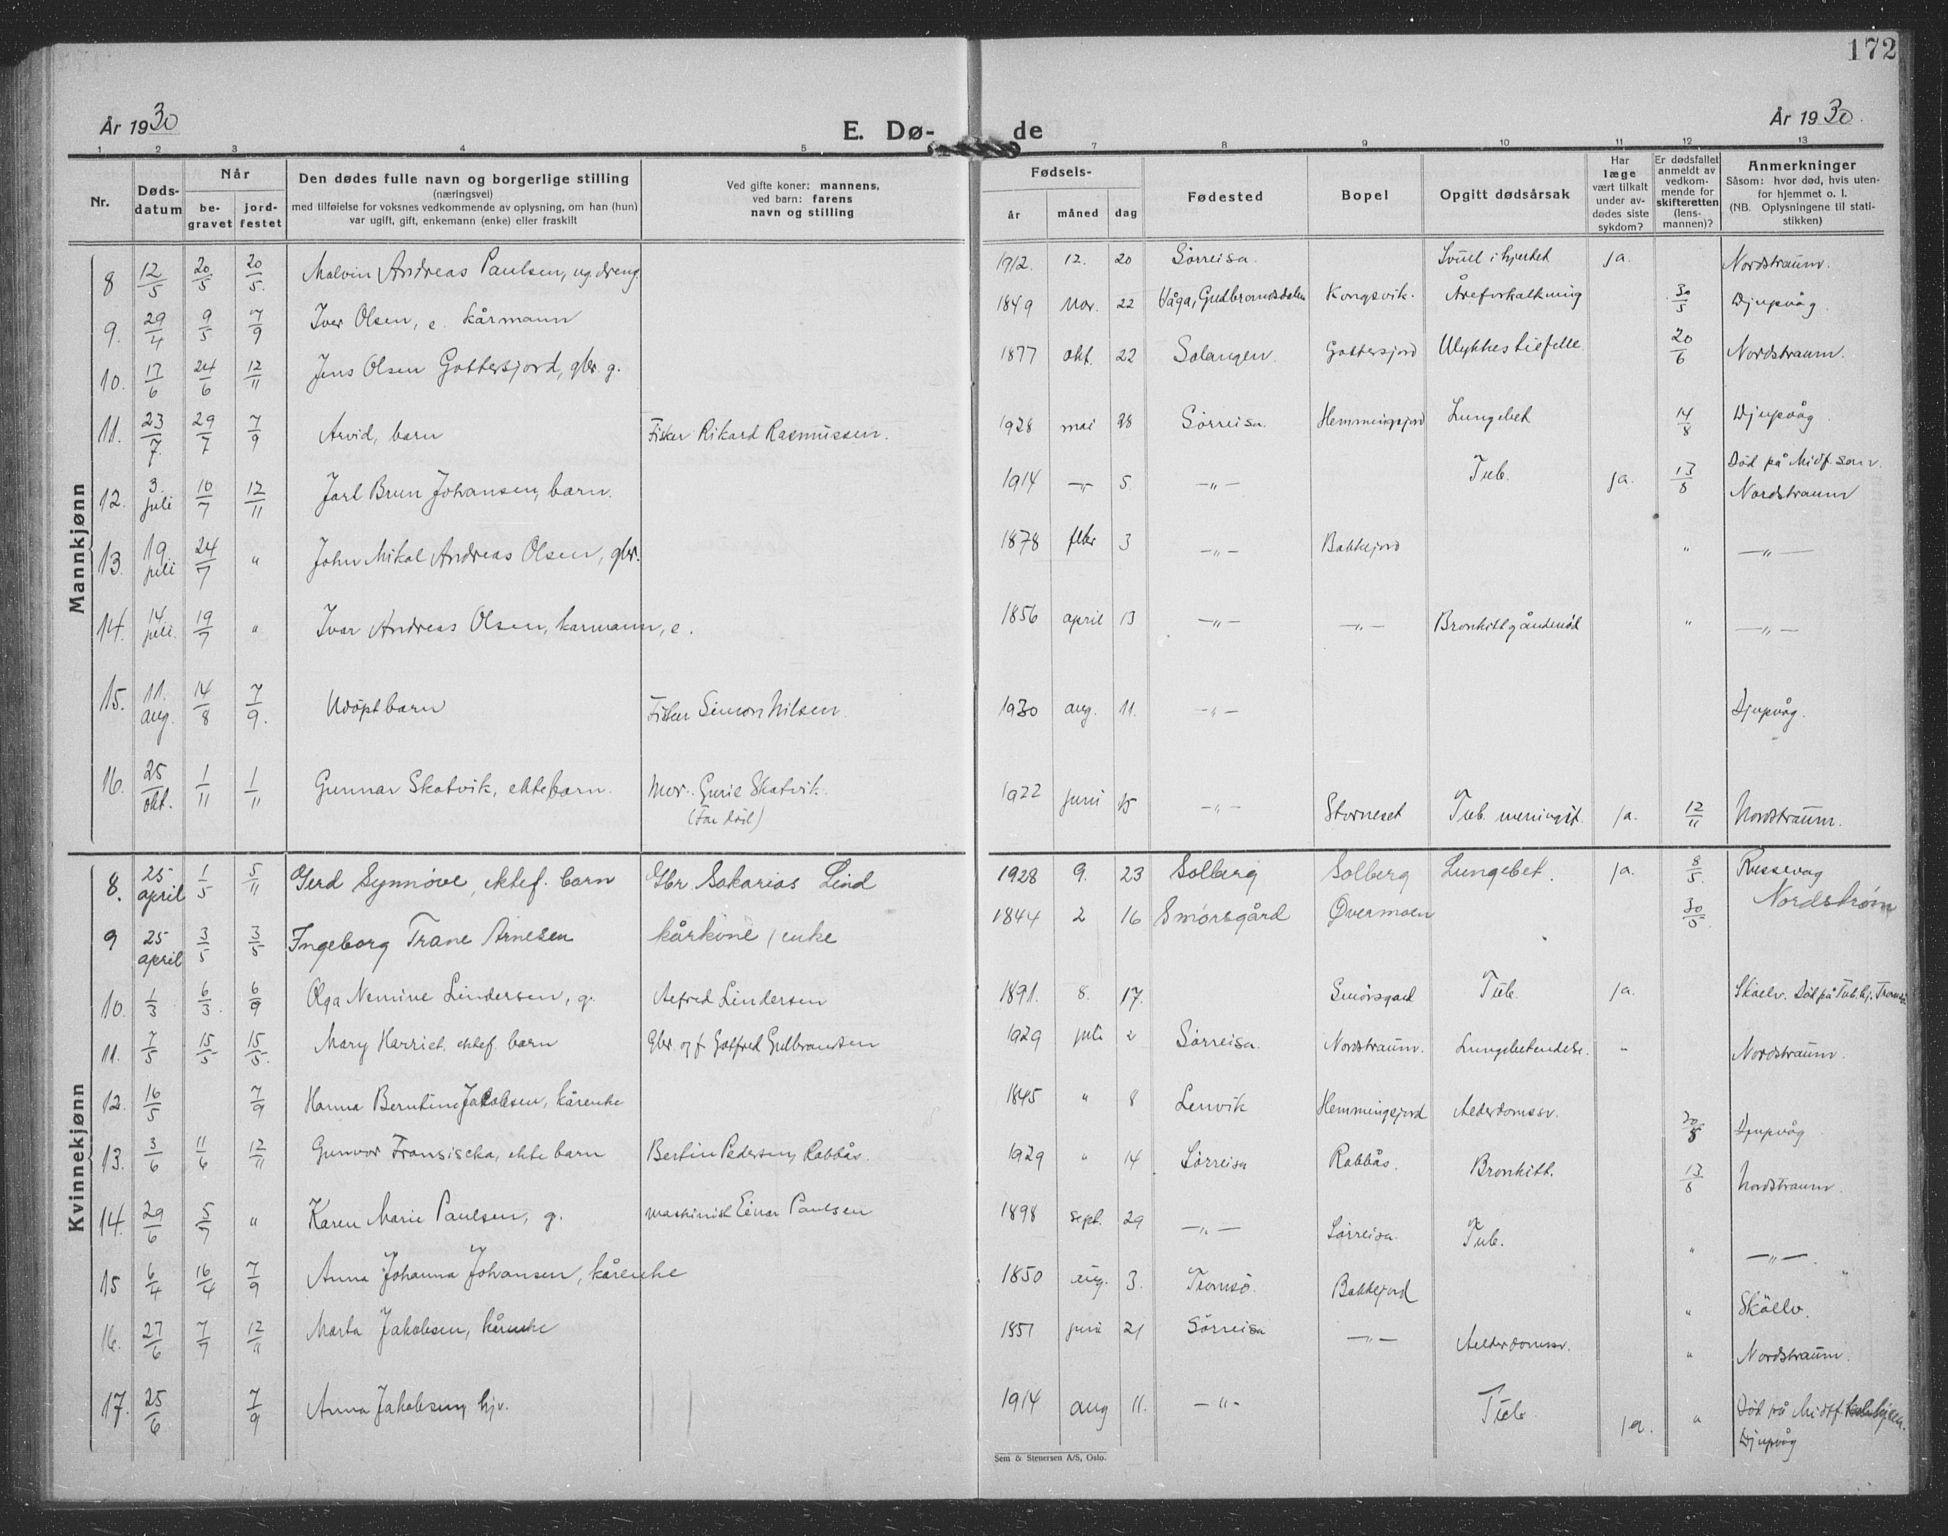 172
År 1930
E. Dø-
de
År 1930.
1 2 3 4 5 7 8 9 10 11 12 13
Nr.
Døds-
datum
Når
be-
gravet
jord-
festet
Den dødes fulle navn og borgerlige stilling
(næringsvei)
med tilføielse for voksnes vedkommende av oplysning, om han (hun)
var ugift, gift, enkemann (enke) eller fraskilt
Ved gifte koner: mannens,
ved barn: farens
navn og stilling
Fødsels-
år
måned
dag
Fødested
Bopel
Opgitt dødsårsak
Har
læge
vært tilkalt
under av-
dødes siste
sykdom?
Er dødsfallet
anmeldt av
vedkom-
mende for
skifteretten
(lens-
mannen)?
Anmerkninger
Såsom: hvor død, hvis uten-
for hjemmet o. l.
(NB. Oplysningene til stati-
stikken)
Mannkjønn
8 12/5 20/5 20/5. Malvin Andreas Paulsen, ug. dreng 1912. 12. 20 Sørreisa. Svull i hjertet ja. Nordstraum.
9. 29/4 9/5 7/9 Iver Olsen, e. kårmann 1849 Nov. 22 Våga, Gudbrandsdalen Kongsvik. Åreforkalkning 30/5 Djupvåg.
10. 17/6 24/6 12/11 Jens Olsen Gottersjord, gbr. g. 1877 okt. 22 Salangen. Gottersjord Ulykkestilfelle 20/6 Nordstraum.
11. 23/7 29/7 7/9 Arvid, barn Fisker Rikard Rasmussen. 1928 mai 28 Sørreisa. Hemmingsjord Lungebet 14/8 Djupvåg
12. 3. juli 10/7 12/11 Jarl Brun Johansen, barn. 1914 —„— 5. —„— Tub. ja. 13/8 Død på Midf. san.
Nordstraum
13. 19. juli 24/7 " John Mikal Andreas Olsen, gbr. 1878 febr 3 —„— Bakkejord " —„—
14. 14. juli. 19/7 " Ivar Andreas Olsen, karmann, e. 1856 april 13 —„— —„— Bronkitt " —„—
15. 11. aug. 14/8 7/9. Udøpt barn Fisker Simon Nilsen. 1930 aug. 11. —„— Djupvåg.
16. 25/okt. 1/11 1/11 Gunnar Skatvik, ektebarn. Mor. Gurie Skatvik.
(Far død) 1922 juni 15 —„— Storneset Tub. meningit. ja. 12/11 Nordstraum.
Kvinnekjønn
8. 25- april 1/5 5/11 Gerd Synnøve, ektef. barn Gbr Sakarias Lind 1928 9. 23 Solberg Solberg Lungebet. ja. 8/5. Russevåg
Nordstrøm
9 25 april 3/5 3/5 Ingeborg Trane Arnesen kårkone / enke 1844 2 16 Smørsgård Øvermoen 30/5
10. 1/3 6/3 6/9 Olga Nemine Lindersen, g. Alfred Lindersen 1891. 8. 17. Smørsgard Tub. ja. Skøelv. Død på Tub. hj. Tromsø
11. 7/5 15/5 15/5. Mary Harriet. ektef. barn Gbr. og f Gotfred Gulbrantsen 1929 juli 2 Sørreisa. Nordstraum. Lungebetendelse. " Nordstraum.
12. 16/5 7/9 Hanna Berntine Jakobsen, kårenke 1845 " 8 Lenvik Hemmingsjord Alderdomssv. 20/8 Djupvåg
13. 3/6 11/6 12/11 Gunvor Fransiscka, ekte barn Bertin Pedersen, Rabbås. 1929 " 14 Sørreisa Rabbås. Bronkitt. 13/8 Nordstraum.
14. 29/6 5/7 " Karen Marie Paulsen, g. maskinist Einar Paulsen 1898 sept. 29 —„— Sørreisa Tub. " —„—
15 6/4 16/4 7/9 Anna Johanna Johansen, kårenke 1850 aug. 3. Tromsø. Bakkejord " Skøelv.
16. 27/6 7/7 12/11 Marta Jakobsen, kårenke 1851 juni 21 Sørreisa —„— Aelderdomssv. " Nordstraum.
17. 25/6 7/9 Anna Jakobsen, hjv. 1914 aug 11. —„— Tub. ja. " Død på Midtf.
Djupvåg
Sem & Stenersen A/S, Oslo.